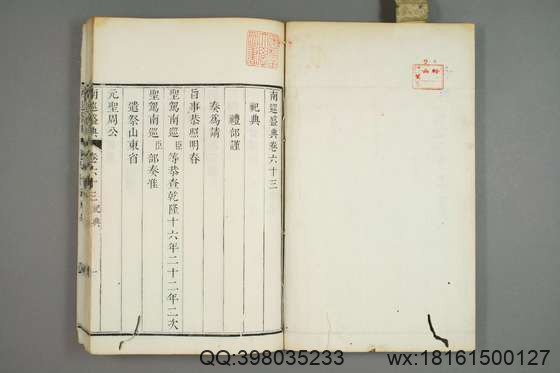 南巡盛典卷六十三
祀典
禮部謹
奏爲請
旨事恭照明春
聖駕南巡臣等恭查乾隆十六年二十二年二次
聖駕南巡臣部奏准
遣祭山東省
元聖周公
南巡盛典 卷六十三 祀典 一
QQ:398035233
wx:18161500127